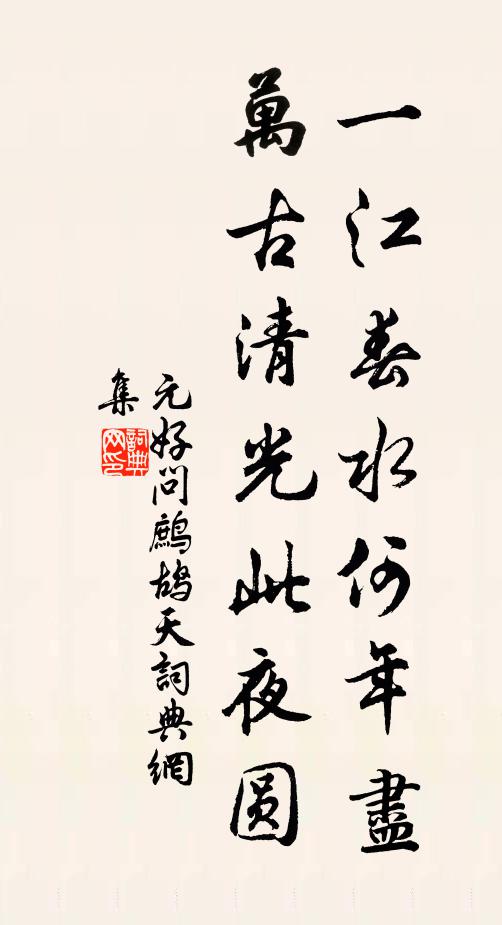 一江春水何年盡
萬古清光此夜圆
元好問鷓鴣天詞典網
集
詞典网印